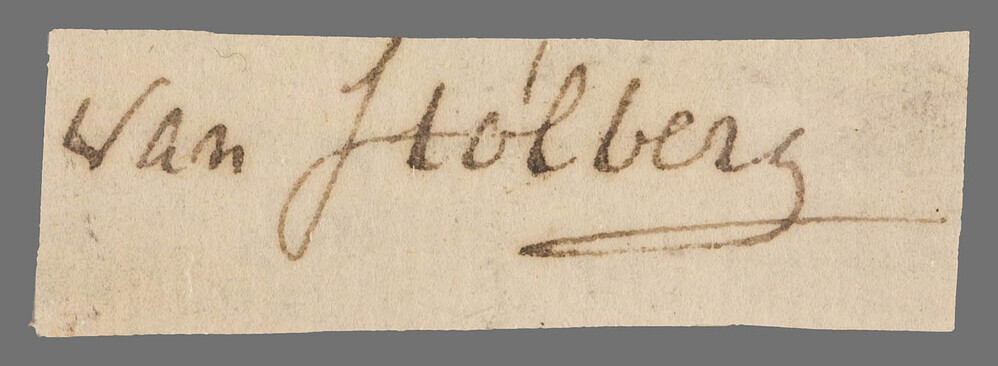 van Stolberg